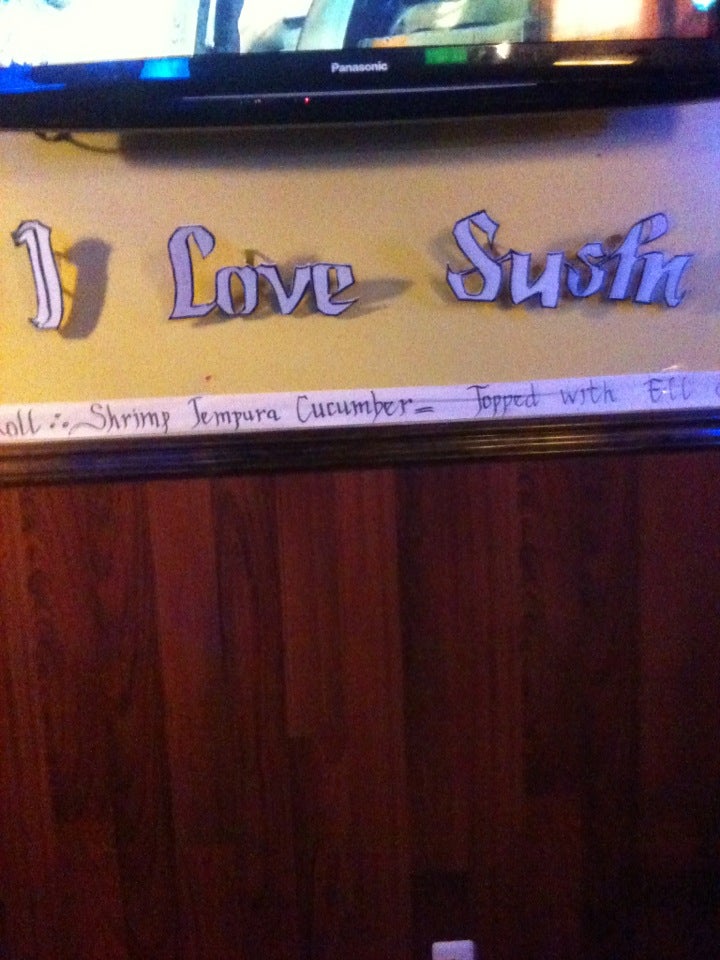 Panasonic
I Love Sushi
Roll :~ Shrimp Tempura Cucumber = Topped with